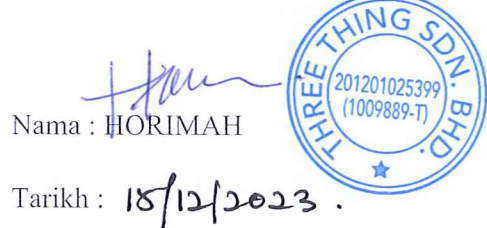 THREE THING SDN. BHD.
201201025399
(1009889-T)
Nama : HORIMAH
Tarikh : 18/12/2023 .